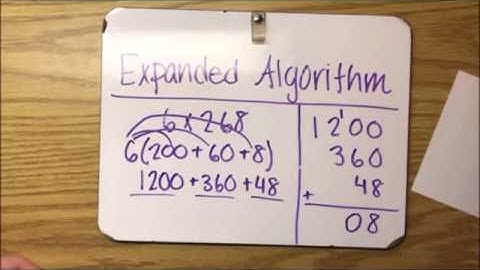 Expanded Algorithm
6 x 268
6(200 + 60 + 8)
1200 + 360 + 48
1
1200
360
+ 48
08